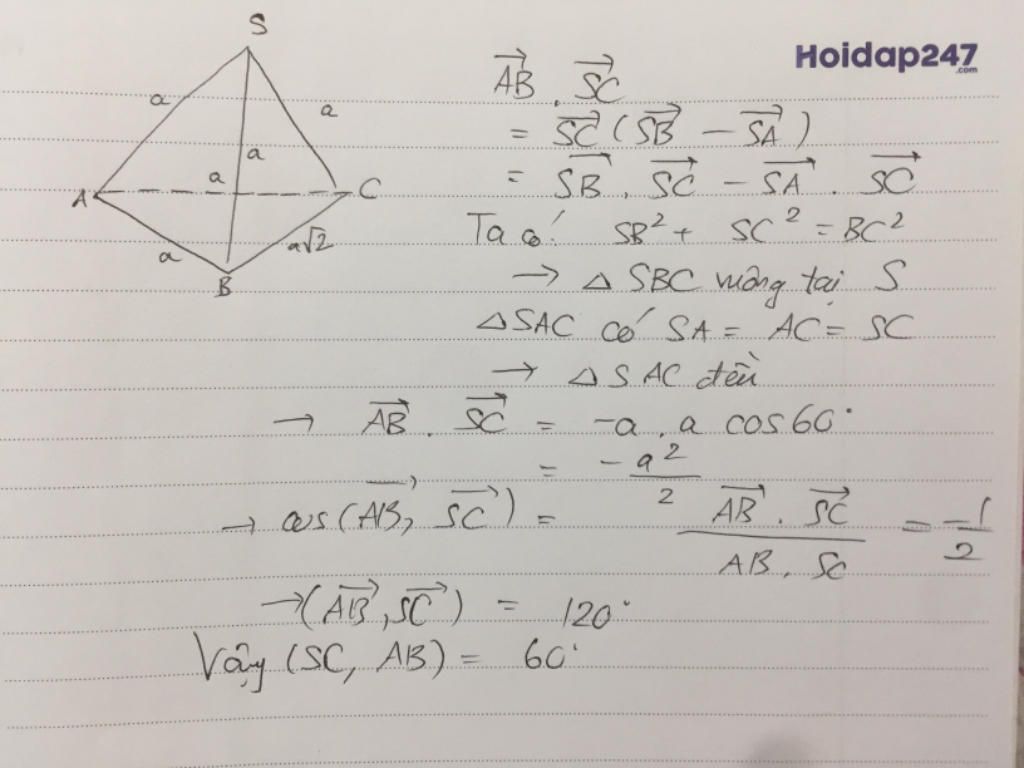 S
Hoidap247
.com
a
a
a
a
A
C
a
a√2
B
→AB . →SC
= →SC (→SB − →SA)
= →SB . →SC − →SA . →SC
Ta có: SB² + SC² = BC²
→ △ SBC vuông tại S
△SAC có SA = AC = SC
→ △ SAC đều
→ →AB . →SC = -a . a cos60°
= -a²/2
→ cos(→AB, →SC) = →AB . →SC / AB . SC = -1/2
→ (→AB, →SC) = 120°
Vậy (SC, AB) = 60°